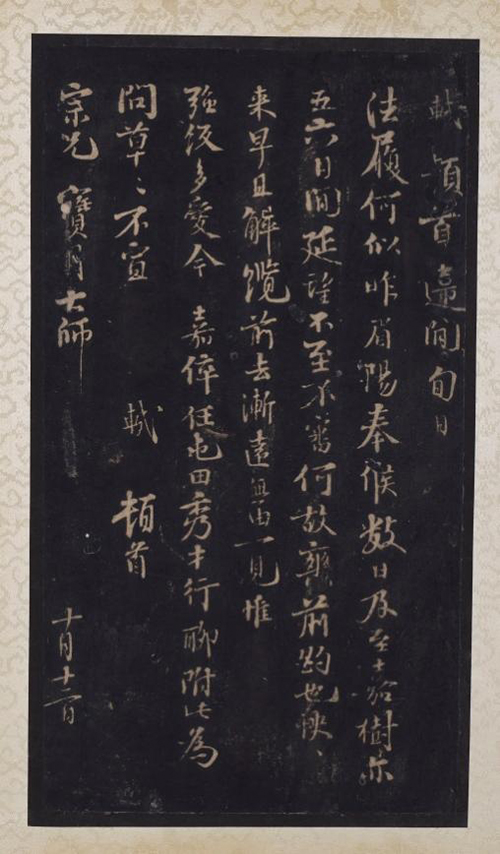 軾頓首違間旬日
法履何似昨眉陽奉候数日及至嘉樹亦
五六日間延望不至不審何故爽前約也怏〻
来早且解纜前去漸遠無由一見惟
强飯多愛今嘉倅任屯田秀才行聊附此為
問草〻不宣
軾
頓首
宗兄寶月大師
十月十二日